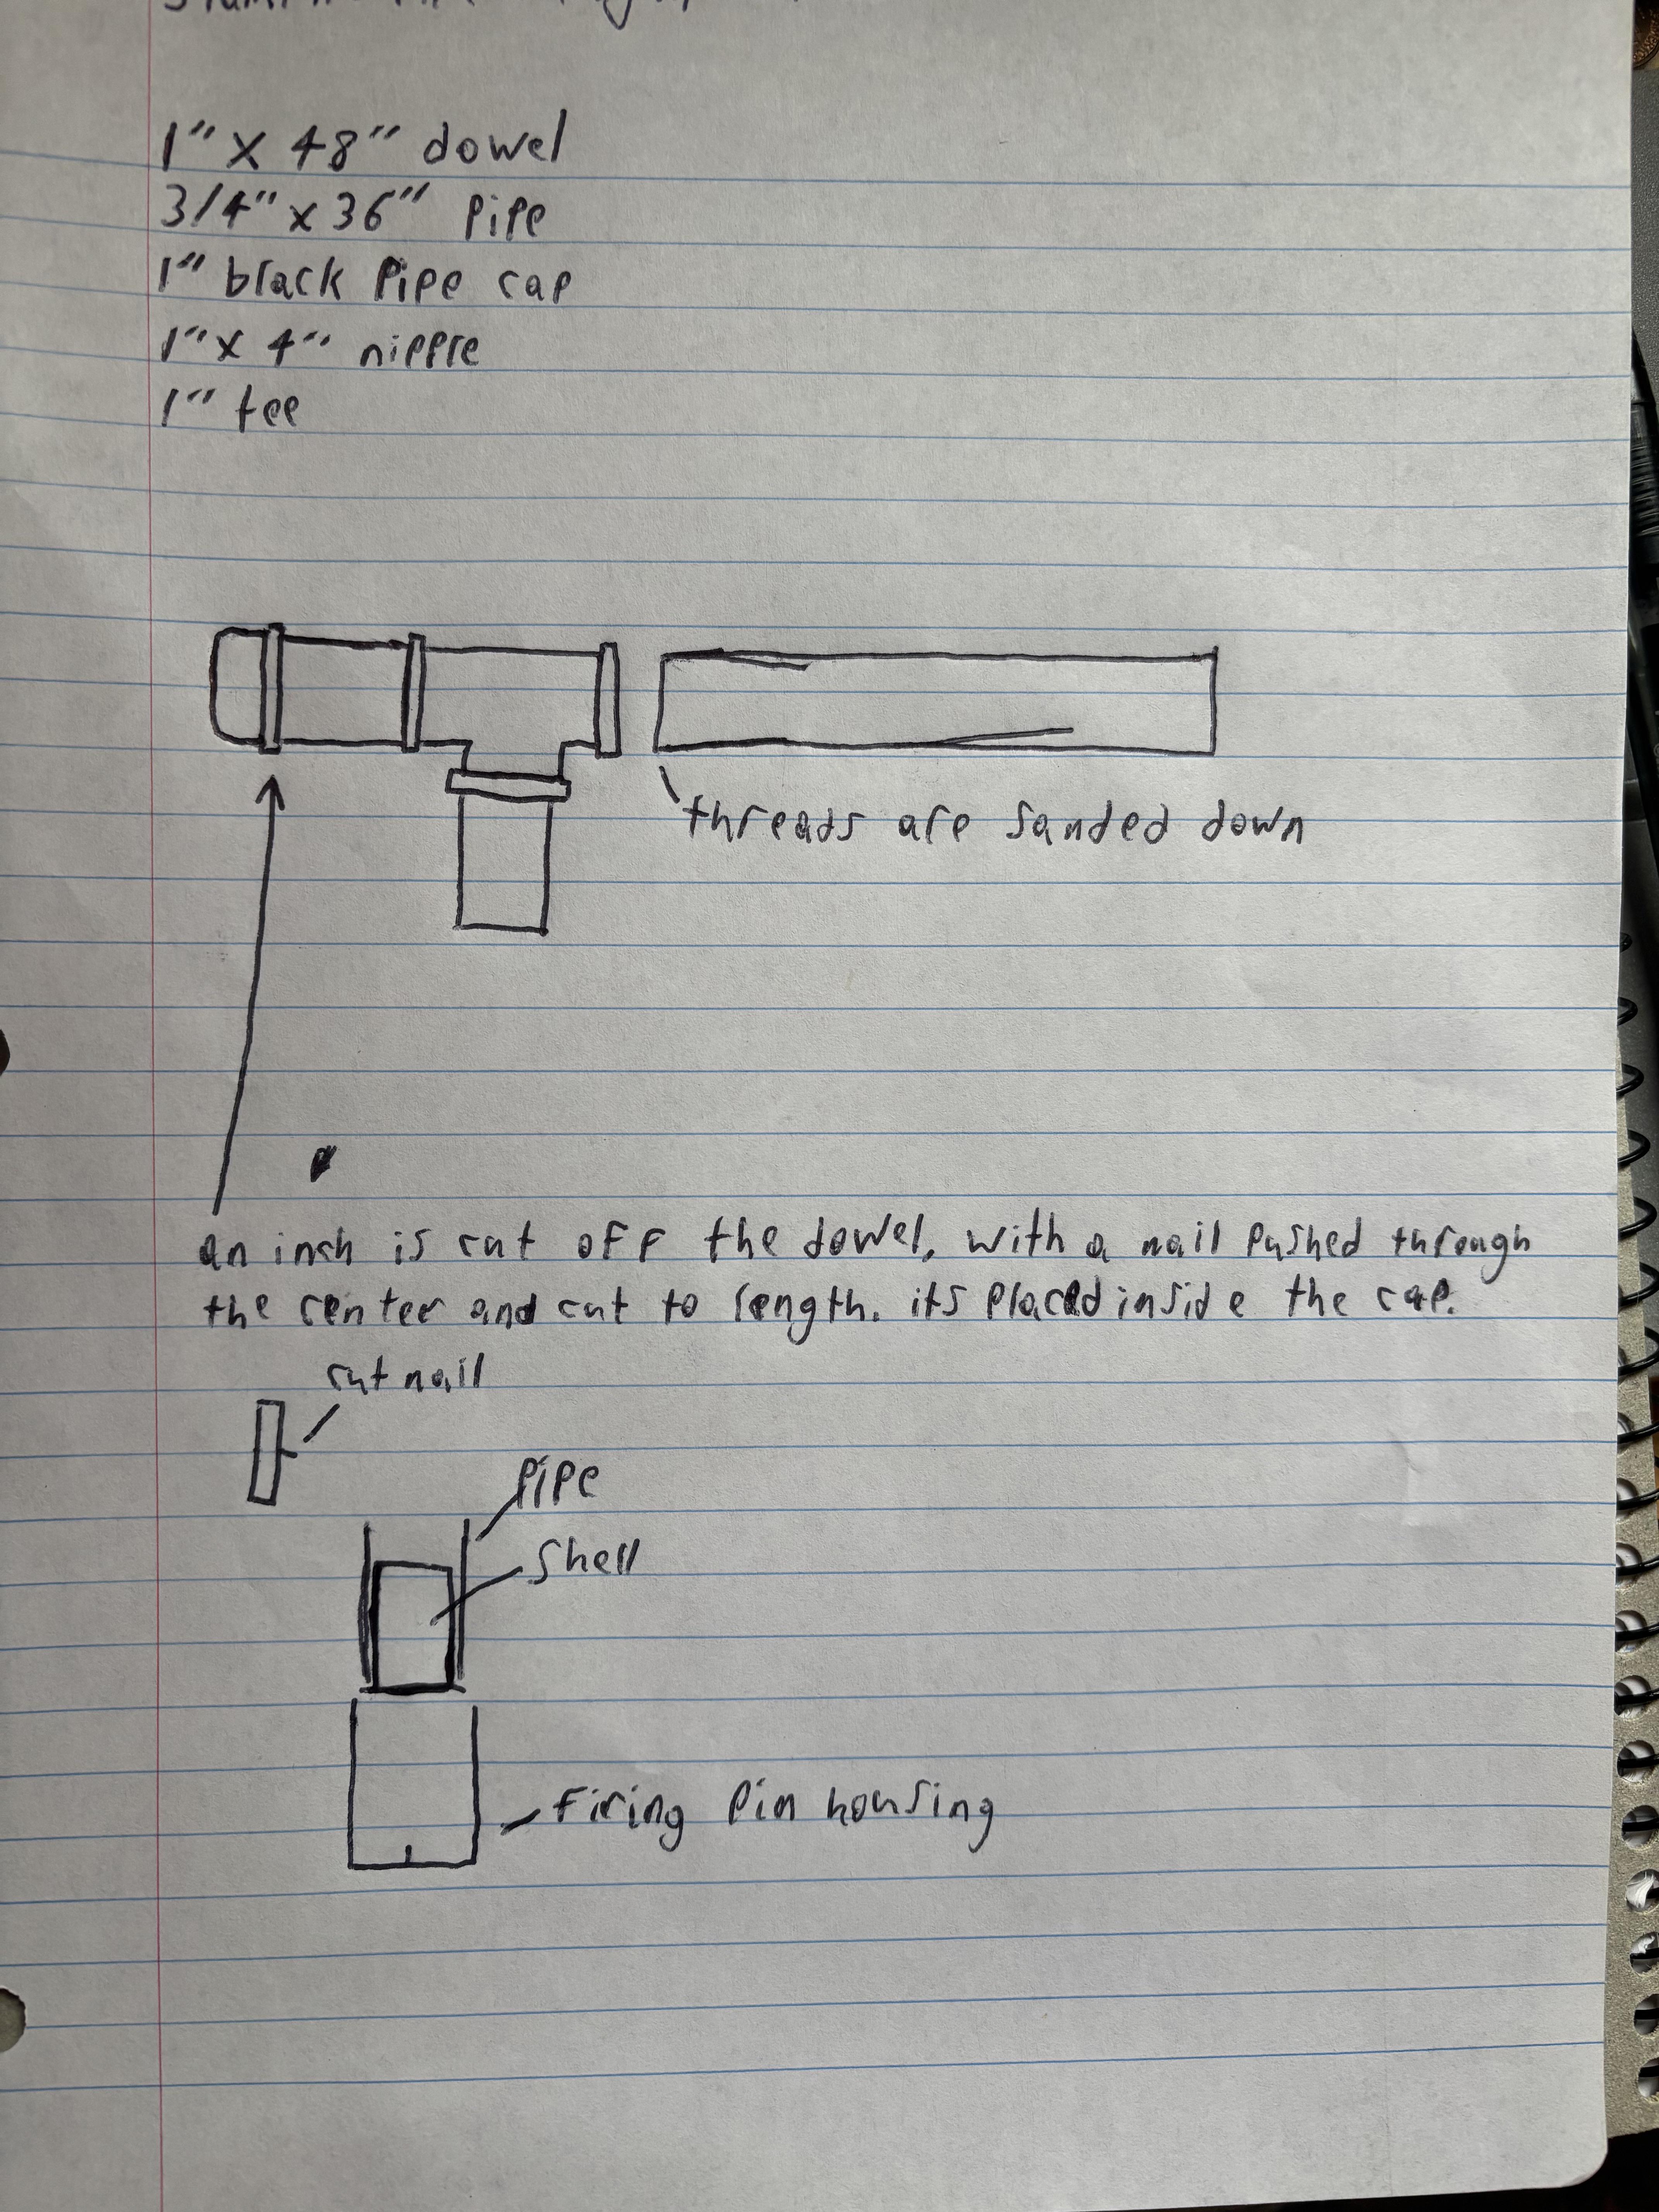 1" x 48" dowel
3/4" x 36" pipe
1" black pipe cap
1" x 4" nipple
1" tee
threads are sanded down
an inch is cut off the dowel, with a nail pushed through
the center and cut to length. its placed inside the cap.
cut nail
pipe
shell
firing pin housing